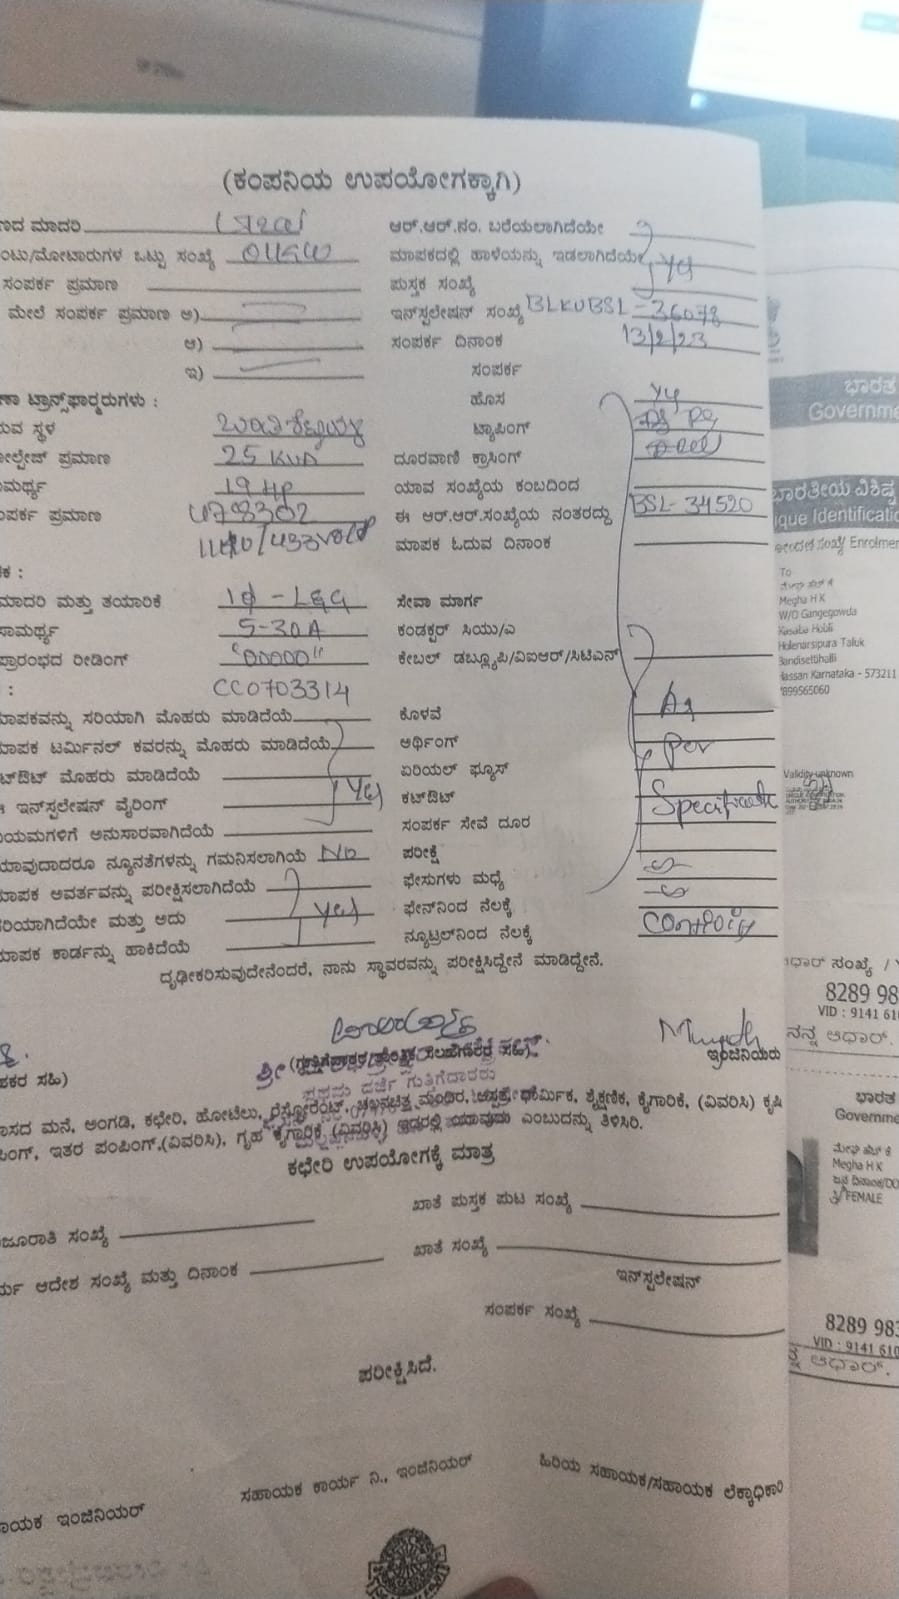 (ಕಂಪನಿಯ ಉಪಯೋಗಕ್ಕಾಗಿ)
ಣದ ಮಾದರಿ
ಆರ್.ಆರ್.ನಂ. ಬರೆಯಲಾಗಿದೆಯೇ
ಂಟು/ಮೋಟಾರುಗಳ ಒಟ್ಟು ಸಂಖ್ಯೆ
ಮಾಪಕದಲ್ಲಿ ಹಾಳೆಯನ್ನು ಇಡಲಾಗಿದೆಯೇ Yes
ಸಂಪರ್ಕ ಪ್ರಮಾಣ
ಪುಸ್ತಕ ಸಂಖ್ಯೆ
ಮೇಲೆ ಸಂಪರ್ಕ ಪ್ರಮಾಣ ಅ)
ಇನ್‌ಸ್ಟಲೇಷನ್ ಸಂಖ್ಯೆ BLKUBSL-36078
ಆ)
ಸಂಪರ್ಕ ದಿನಾಂಕ 13/2/23
ಇ)
ಸಂಪರ್ಕ
ಣಾ ಟ್ರಾನ್ಸ್‌ಫಾರ್ಮರುಗಳು :
ಹೊಸ Yes
ರುವ ಸ್ಥಳ
ಟ್ಯಾಪಿಂಗ್
ೋಲ್ಟೇಜ್ ಪ್ರಮಾಣ 25 KVA
ದೂರವಾಣಿ ಕ್ರಾಸಿಂಗ್
ಾಮರ್ಥ್ಯ 19 HP
ಯಾವ ಸಂಖ್ಯೆಯ ಕಂಬದಿಂದ
ಂಪರ್ಕ ಪ್ರಮಾಣ
ಈ ಆರ್.ಆರ್.ಸಂಖ್ಯೆಯ ನಂತರದ್ದು BSL-34520
ಮಾಪಕ ಓದುವ ದಿನಾಂಕ
ಕ :
ಮಾದರಿ ಮತ್ತು ತಯಾರಿಕೆ 1ϕ - L&G
ಸೇವಾ ಮಾರ್ಗ
ಸಾಮರ್ಥ್ಯ 5-30A
ಕಂಡಕ್ಟರ್ ಸಿಯು/ಎ
ಪ್ರಾರಂಭದ ರೀಡಿಂಗ್ "00000"
ಕೇಬಲ್ ಡಬ್ಲ್ಯೂಪಿ/ವಿಐಆರ್/ಸಿಟಿಎಸ್
: CC0703314
ಮಾಪಕವನ್ನು ಸರಿಯಾಗಿ ಮೊಹರು ಮಾಡಿದೆಯೆ
ಕೊಳವೆ As
ಮಾಪಕ ಟರ್ಮಿನಲ್ ಕವರನ್ನು ಮೊಹರು ಮಾಡಿದೆಯೆ
ಅರ್ಥಿಂಗ್ Per
ಟ್‌ಔಟ್ ಮೊಹರು ಮಾಡಿದೆಯೆ
ಏರಿಯಲ್ ಫ್ಯೂಸ್
ಇನ್‌ಸ್ಟಲೇಷನ್ ವೈರಿಂಗ್ Yes
ಕಟ್‌ಔಟ್
ಯಮಗಳಿಗೆ ಅನುಸಾರವಾಗಿದೆಯೆ
ಸಂಪರ್ಕ ಸೇವೆ ದೂರ
ಯಾವುದಾದರೂ ನ್ಯೂನತೆಗಳನ್ನು ಗಮನಿಸಲಾಗಿಯೆ No
ಪರೀಕ್ಷೆ
ಮಾಪಕ ಆವರ್ತವನ್ನು ಪರೀಕ್ಷಿಸಲಾಗಿದೆಯೆ
ಫೇಸುಗಳು ಮಧ್ಯೆ
ರಿಯಾಗಿದೆಯೇ ಮತ್ತು ಅದು Yes
ಫೇಸ್‌ನಿಂದ ನೆಲಕ್ಕೆ
ಮಾಪಕ ಕಾರ್ಡನ್ನು ಹಾಕಿದೆಯೆ
ನ್ಯೂಟ್ರಲ್‌ನಿಂದ ನೆಲಕ್ಕೆ
ದೃಢೀಕರಿಸುವುದೇನೆಂದರೆ, ನಾನು ಸ್ಥಾವರವನ್ನು ಪರೀಕ್ಷಿಸಿದ್ದೇನೆ ಮಾಡಿದ್ದೇನೆ.
ಶ್ರೀ
ಕರ ಸಹಿ)
ಇಂಜಿನಿಯರು
ಪ್ರಥಮ ದರ್ಜೆ ಗುತ್ತಿಗೆದಾರರು
ಾಸದ ಮನೆ, ಅಂಗಡಿ, ಕಛೇರಿ, ಹೋಟೆಲು, ರೆಸ್ಟೋರೆಂಟ್, ಚಲನಚಿತ್ರ ಮಂದಿರ, ಆಸ್ಪತ್ರೆ, ಧಾರ್ಮಿಕ, ಶೈಕ್ಷಣಿಕ, ಕೈಗಾರಿಕೆ, (ವಿವರಿಸಿ) ಕೃಷಿ
ಪಿಂಗ್, ಇತರ ಪಂಪಿಂಗ್,(ವಿವರಿಸಿ), ಗೃಹ ಕೈಗಾರಿಕೆ, (ವಿವರಿಸಿ) ಇದರಲ್ಲಿ ಯಾವುದು ಎಂಬುದನ್ನು ತಿಳಿಸಿರಿ.
ಕಛೇರಿ ಉಪಯೋಗಕ್ಕೆ ಮಾತ್ರ
ಖಾತೆ ಪುಸ್ತಕ ಪುಟ ಸಂಖ್ಯೆ
ಜೂರಾತಿ ಸಂಖ್ಯೆ
ಖಾತೆ ಸಂಖ್ಯೆ
ರ್ಯ ಆದೇಶ ಸಂಖ್ಯೆ ಮತ್ತು ದಿನಾಂಕ
ಇನ್‌ಸ್ಟಲೇಷನ್
ಸಂಪರ್ಕ ಸಂಖ್ಯೆ
ಪರೀಕ್ಷಿಸಿದೆ.
ಾಯಕ ಇಂಜಿನಿಯರ್
ಸಹಾಯಕ ಕಾರ್ಯ ನಿ., ಇಂಜಿನಿಯರ್
ಹಿರಿಯ ಸಹಾಯಕ/ಸಹಾಯಕ ಲೆಕ್ಕಾಧಿಕಾರಿ
ಭಾರತ
Governme
ಭಾರತೀಯ ವಿಶಿಷ್ಟ
ique Identificatio
Enrolmen
To
Megha H K
W/O Gangegowda
Kasaba Hobli
Holenarsipura Taluk
Bandisettihalli
Hassan Karnataka - 573211
7899565060
Validity unknown
ಧಾರ್ ಸಂಖ್ಯೆ /
8289 98
VID : 9141 610
ನನ್ನ ಆಧಾರ್.
ಭಾರತ
Governme
ಮೇಘ ಹೆಚ್ ಕೆ
Megha H K
FEMALE
8289 983
VID : 9141 610
ಆಧಾರ್.